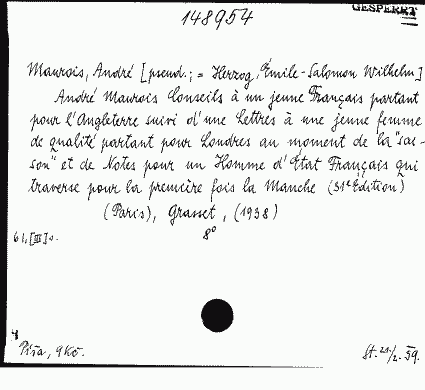 148954
GESPERRT
Maurois, André [pseud.; = Herzog, Émile-Salomon Wilhelm]
André Maurois Conseils à un jeune Français partant
pour l'Angleterre suivi d'une Lettres à une jeune femme
de qualité partant pour Londres au moment de la "sai-
son" et de Notes pour un Homme d'État Français qui
traverse pour la première fois la Manche (31e Edition)
(Paris), Grasset, (1938)
8°
61, [III] s.
4
Piša, 9Kč.
St. 21./2. 39.